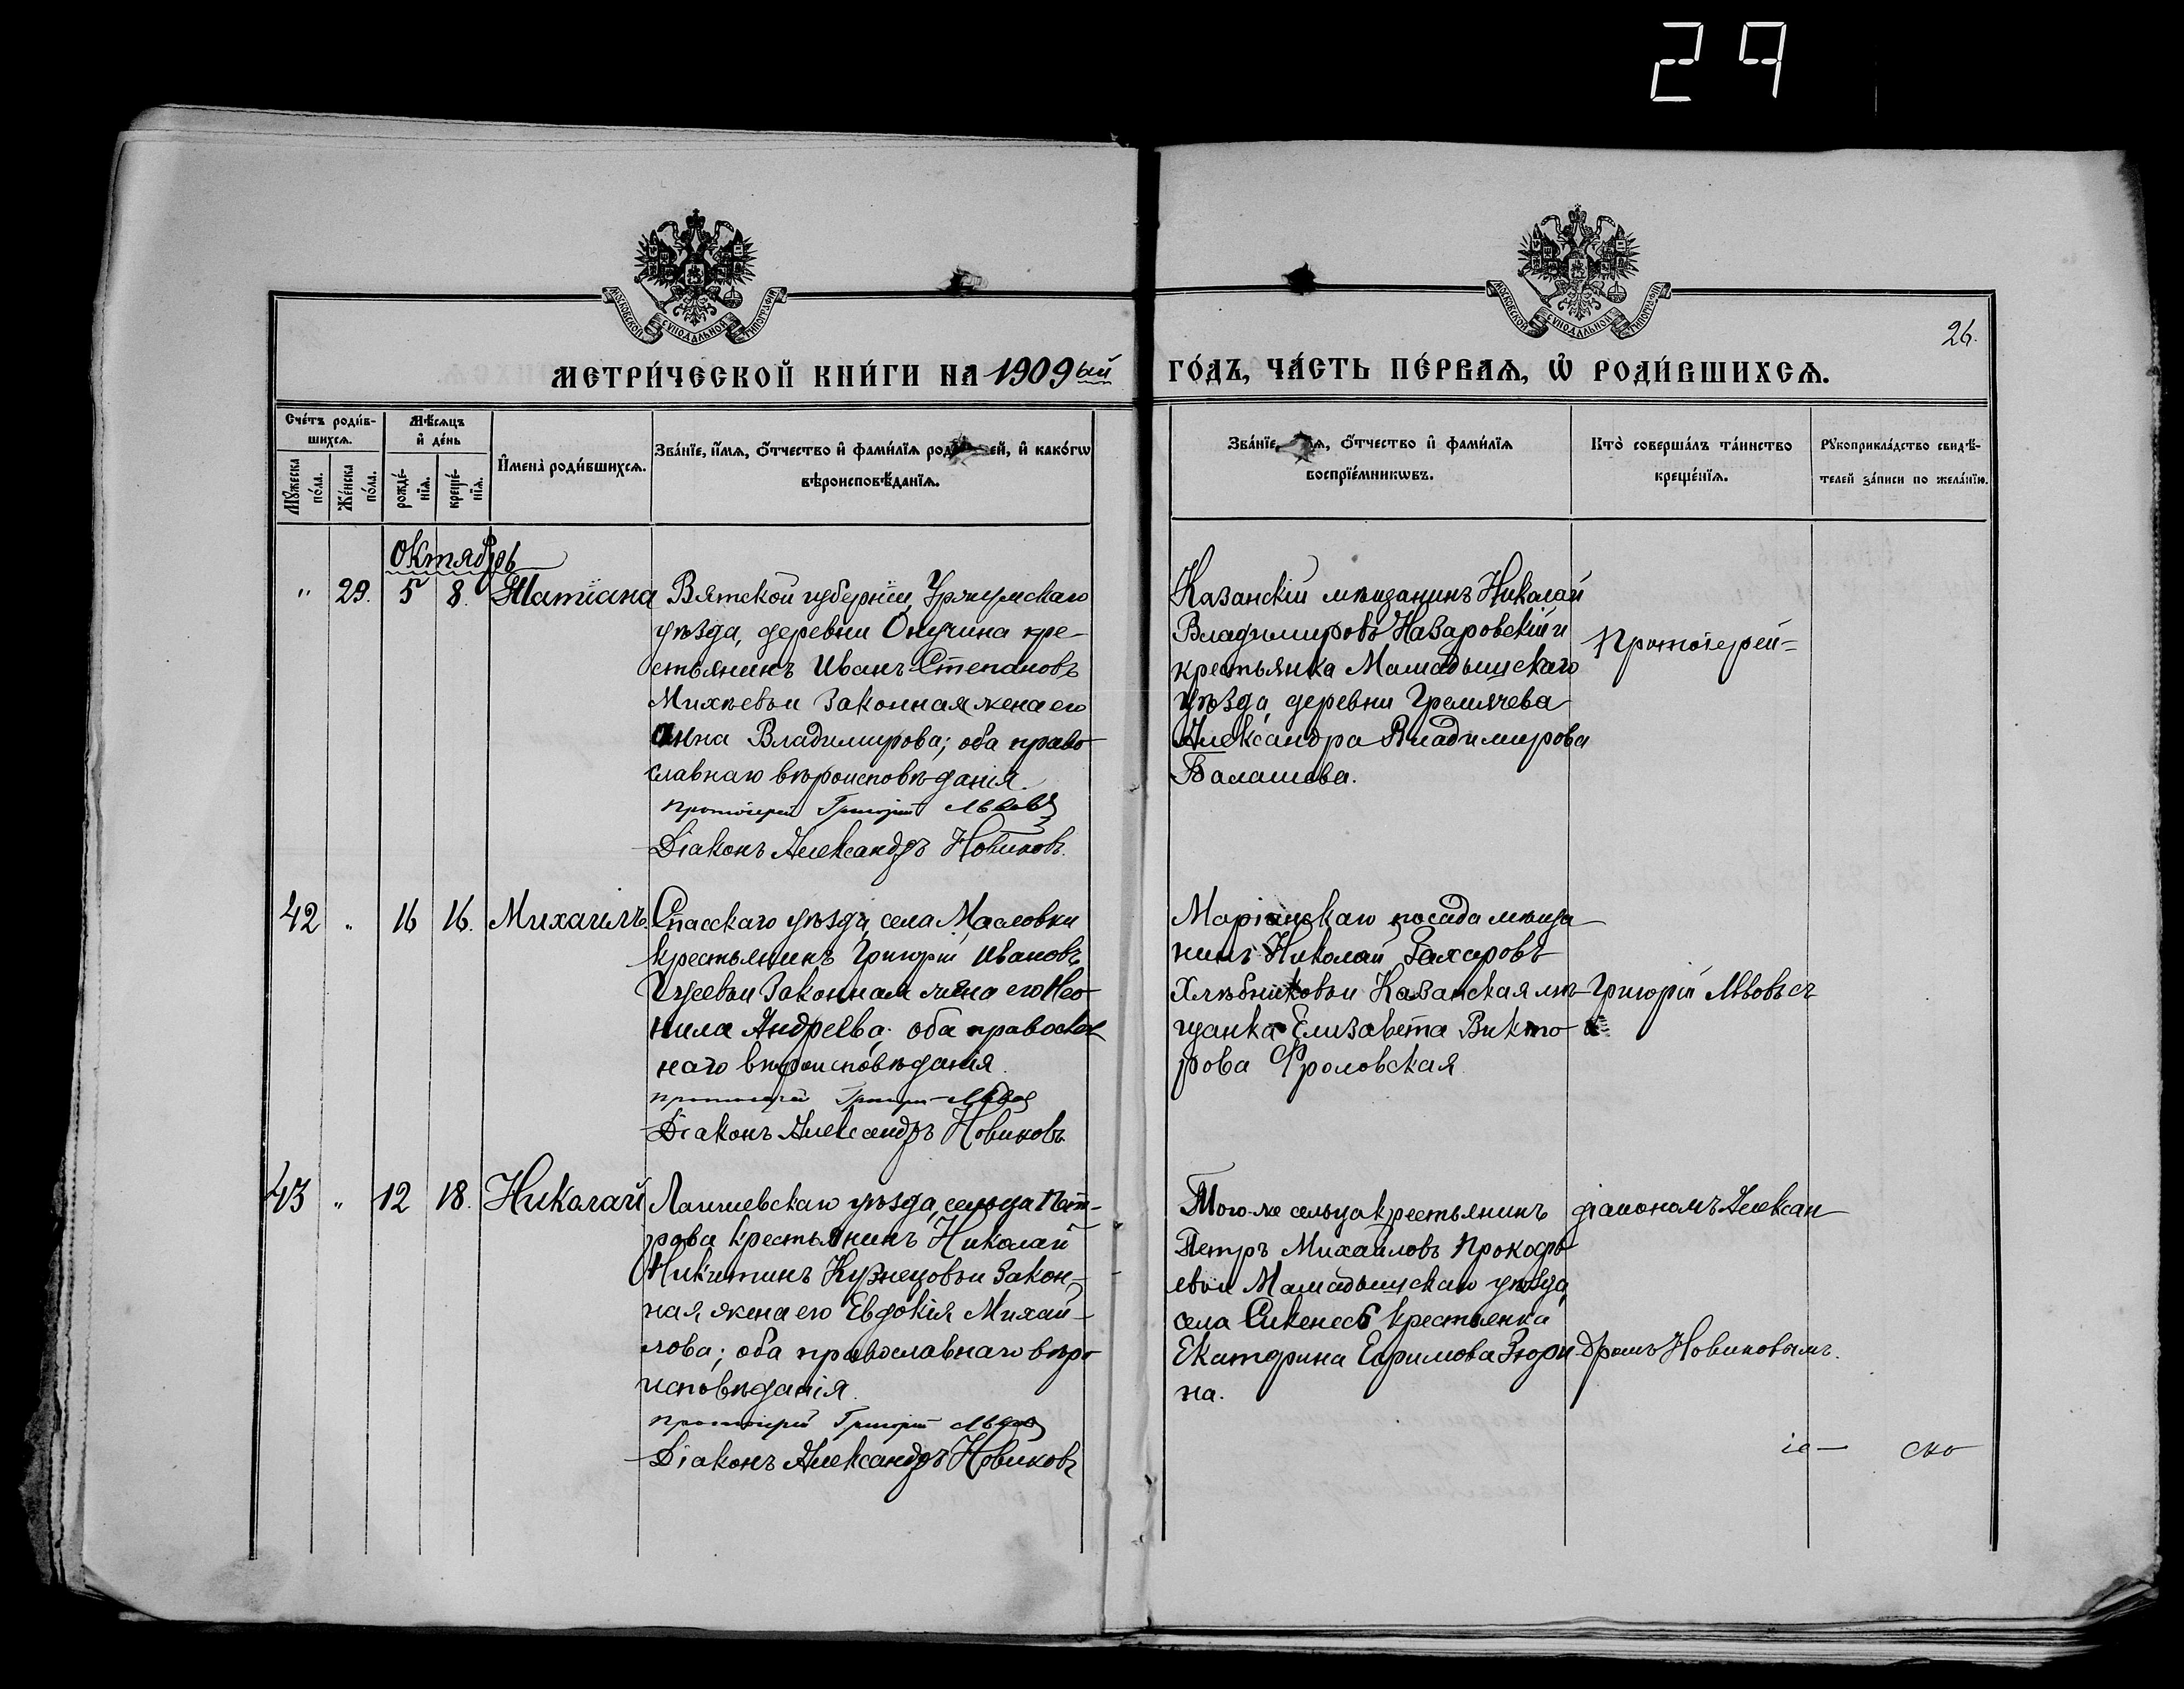 29
МОСКОВСКОЙ СѴНОДАЛЬНОЙ ТИПОГРАФІИ
МОСКОВСКОЙ СѴНОДАЛЬНОЙ ТИПОГРАФІИ
26.
МЕТРИ́ЧЕСКОЙ КНИ́ГИ НА 1909ый ГО́ДЪ, ЧА́СТЬ ПЕ́РВАѦ, Ѡ҆ РОДИ́ВШИХСѦ.
Сче́тъ роди́в-
шихсѧ.
Мѣ́сѧцъ
и҆ де́нь
Мꙋ́жеска по́ла.
Же́нска по́ла.
рожде́-
нїѧ.
креще́-
нїѧ.
И҆мена̀ роди́вшихсѧ.
Зва́нїе, и҆́мѧ, ѻ҆́тчество и҆ фами́лїѧ род ей, и҆ како́гѡ
вѣроисповѣ́данїѧ.
Зва́нїе, ѧ, ѻ҆́тчество и҆ фами́лїѧ
воспрїе́мникѡвъ.
Кто̀ соверша́лъ та́инство
креще́нїѧ.
Рꙋкоприкла́дство свидѣ́-
телей за́писи по жела́нїю.
Октябрь
" 29. 5 8. Татіана
Вятской губерніи, Уржумскаго
уѣзда, деревни Онучина кре-
стьянинъ Иванъ Степановъ
Михѣевъ и законная жена его
Анна Владимирова; оба право-
славнаго вѣроисповѣданія.
Протоіерей Григорій Львовъ
Діаконъ Александръ Новиковъ.
Казанскій мѣщанинъ Николай
Владимировъ Назаровскій и
крестьянка Мамадышскаго
уѣзда, деревни Гремячева
Александра Владимирова
Балашева.
Протоіерей-
42 " 16 16. Михаилъ.
Спасскаго уѣзда, села Масловки
крестьянинъ Григорій Ивановъ
законная жена его Нео-
нила Андреева; оба православ
наго вѣроисповѣданія.
Протоіерей Григорій Львовъ
Діаконъ Александръ Новиковъ
Маріинскаго посада мѣща-
нинъ Николай Захаровъ
Хлѣбниковъ и Казанская мѣ-
щанка Елизавета Викто-
рова Фроловская.
Григорій Львовъ съ
43 " 12 18. Николай
Лаишевскаго уѣзда, сельца Пет-
рова крестьянинъ Николай
Никитинъ Кузнецовъ и закон-
ная жена его Евдокія Михай-
лова; оба православнаго вѣро-
исповѣданія.
Протоіерей Григорій Львовъ
Діаконъ Александръ Новиковъ
Того-же сельца крестьянинъ
Петръ Михаиловъ Прокофь-
евъ и Мамадышскаго уѣзда,
села Сикенесь крестьянка
Екатерина Ефимова Зюри-
на.
діакономъ Алексан-
дромъ Новиковымъ.
іе— ско